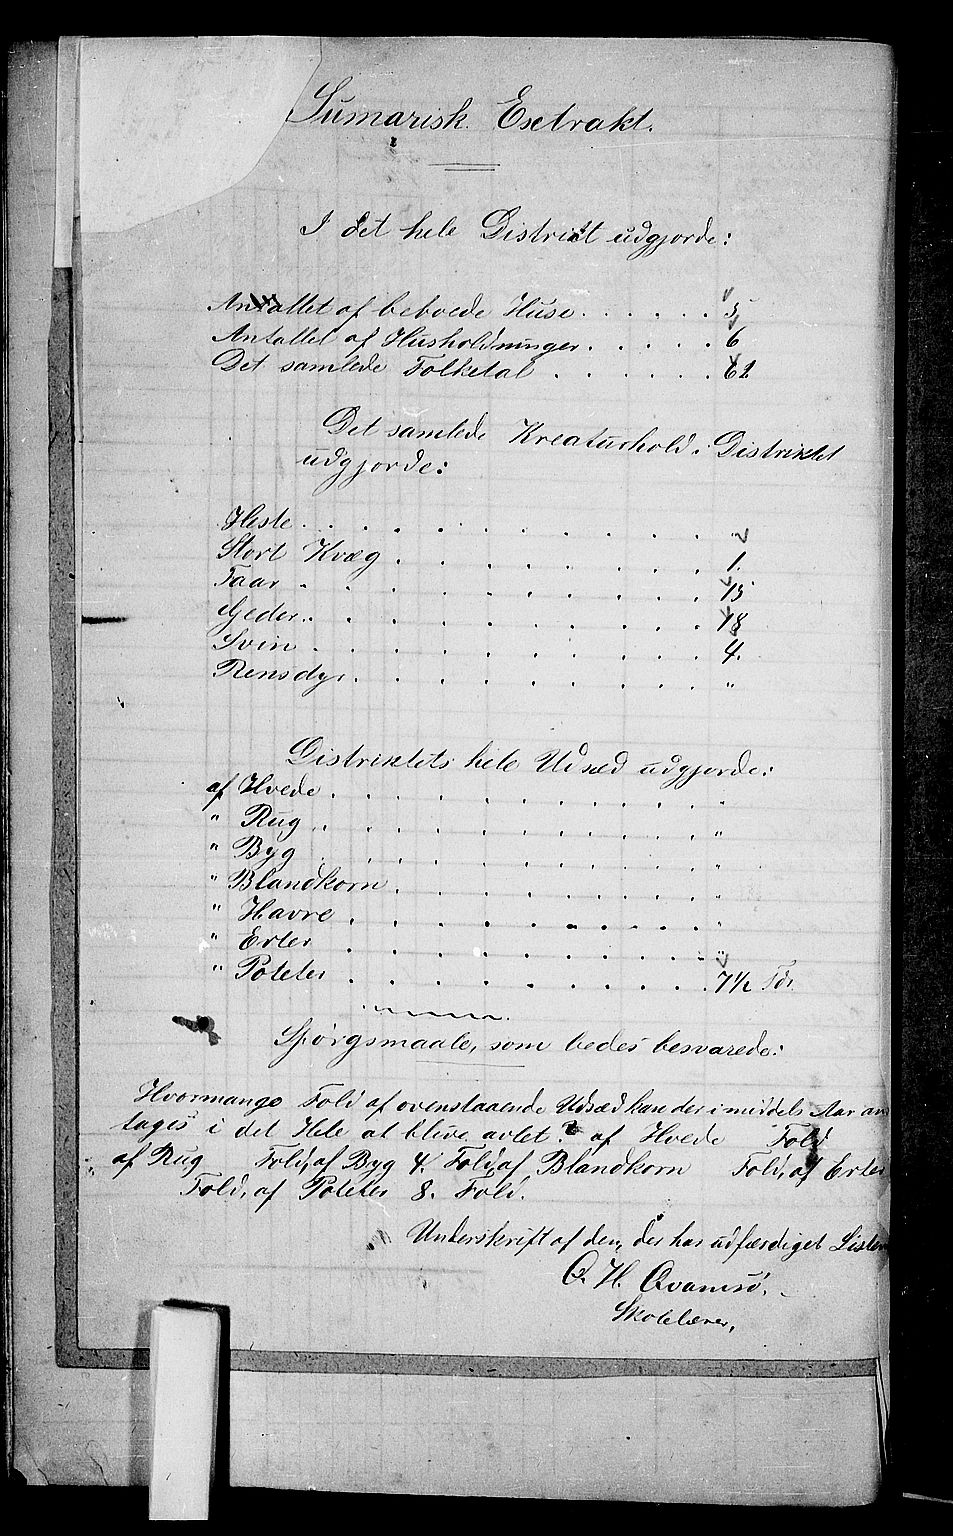 Sumarisk. Esetrakt.
I det hele District udgjorde:
Antallet af beboede Huse . . . . . . 5
Antallet af Husholdninger . . . . . 6
Det samlede Folketal . . . . . . 61.
Det samlede Kreaturhold i Distriktet
udgjorde:
Heste . . . . . . . . . . "
Stort Kvæg . . . . . . . 1.
Faar . . . . . . . . . 15
Geder . . . . . . . . . 18
Svin . . . . . . . . . 4.
Rensdyr . . . . . . . . "
Distriktets hele Udsæd udgjorde:
af Hvede . . . . . . . . . "
" Rug . . . . . . . . . "
" Byg . . . . . . . . . "
" Blandkorn . . . . . . . "
" Havre . . . . . . . . "
" Erter . . . . . . . . "
" Poteter . . . . . . . . 7 1/2 Tdr
Spørgsmaale, som bedes besvarede:
Hvormange Fold af ovenstaaende Udsæd kan der i middels Aar an
tages i det Hele at blive avlet? af Hvede Fold
af Rug Fold, af Byg 4. Fold, af Blandkorn Fold, af Erter
Fold, af Poteter 8. Fold.
Underskrift af den, der har udfærdiget Listen
O. H. Qvamsø.
Skolelærer,